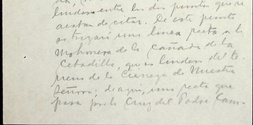 lindero entre los dos puntos que se
acaban de citar. De este punto
se tirará una linea recta a la
Mohonera de la cañada de la
Cebadilla, que es lindero del te
rreno de la Cienega de Nuestra
Señora; de aqui, una recta que
pasa por la Cruz del Padre Cam